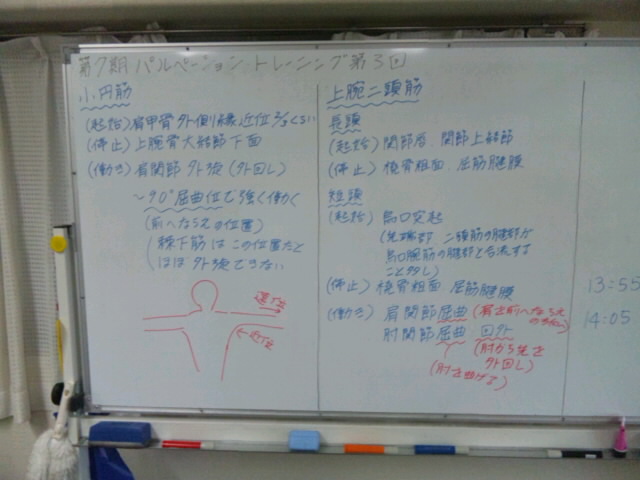 第7期 パルペーション トレーニング 第3回
小円筋
(起始) 肩甲骨 外側縁 近位 2/3くらい
(停止) 上腕骨大結節下面
(働き) 肩関節 外旋 (外回し)
~90°屈曲位で強く働く
(前へならえの位置)
棘下筋はこの位置だと
ほぼ外旋できない
遠位
近位
上腕二頭筋
長頭
(起始) 関節唇 関節上結節
(停止) 橈骨粗面 屈筋腱膜
短頭
(起始) 烏口突起
(先端部 二頭筋の腱部が
烏口腕筋の腱部と合流する
こと多し)
(停止) 橈骨粗面 屈筋腱膜
(働き) 肩関節屈曲 (肩を前へならえ
の方向)
肘関節屈曲 回外
(肘から先を
外回し)
(肘を曲げる)
13:55
14:05